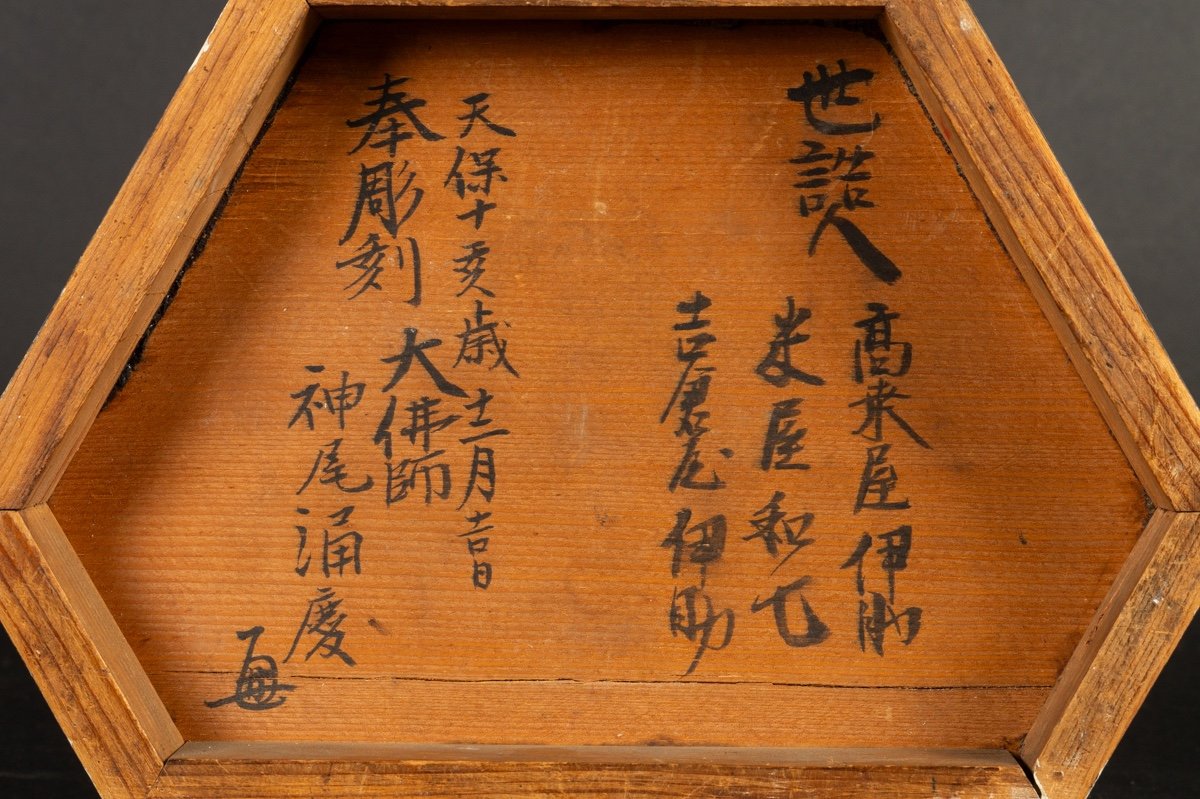 世話人
高来屋伊助
米屋和七
吉倉屋伊助
天保十亥歳十二月吉日
奉彫刻
大佛師
神尾涌慶